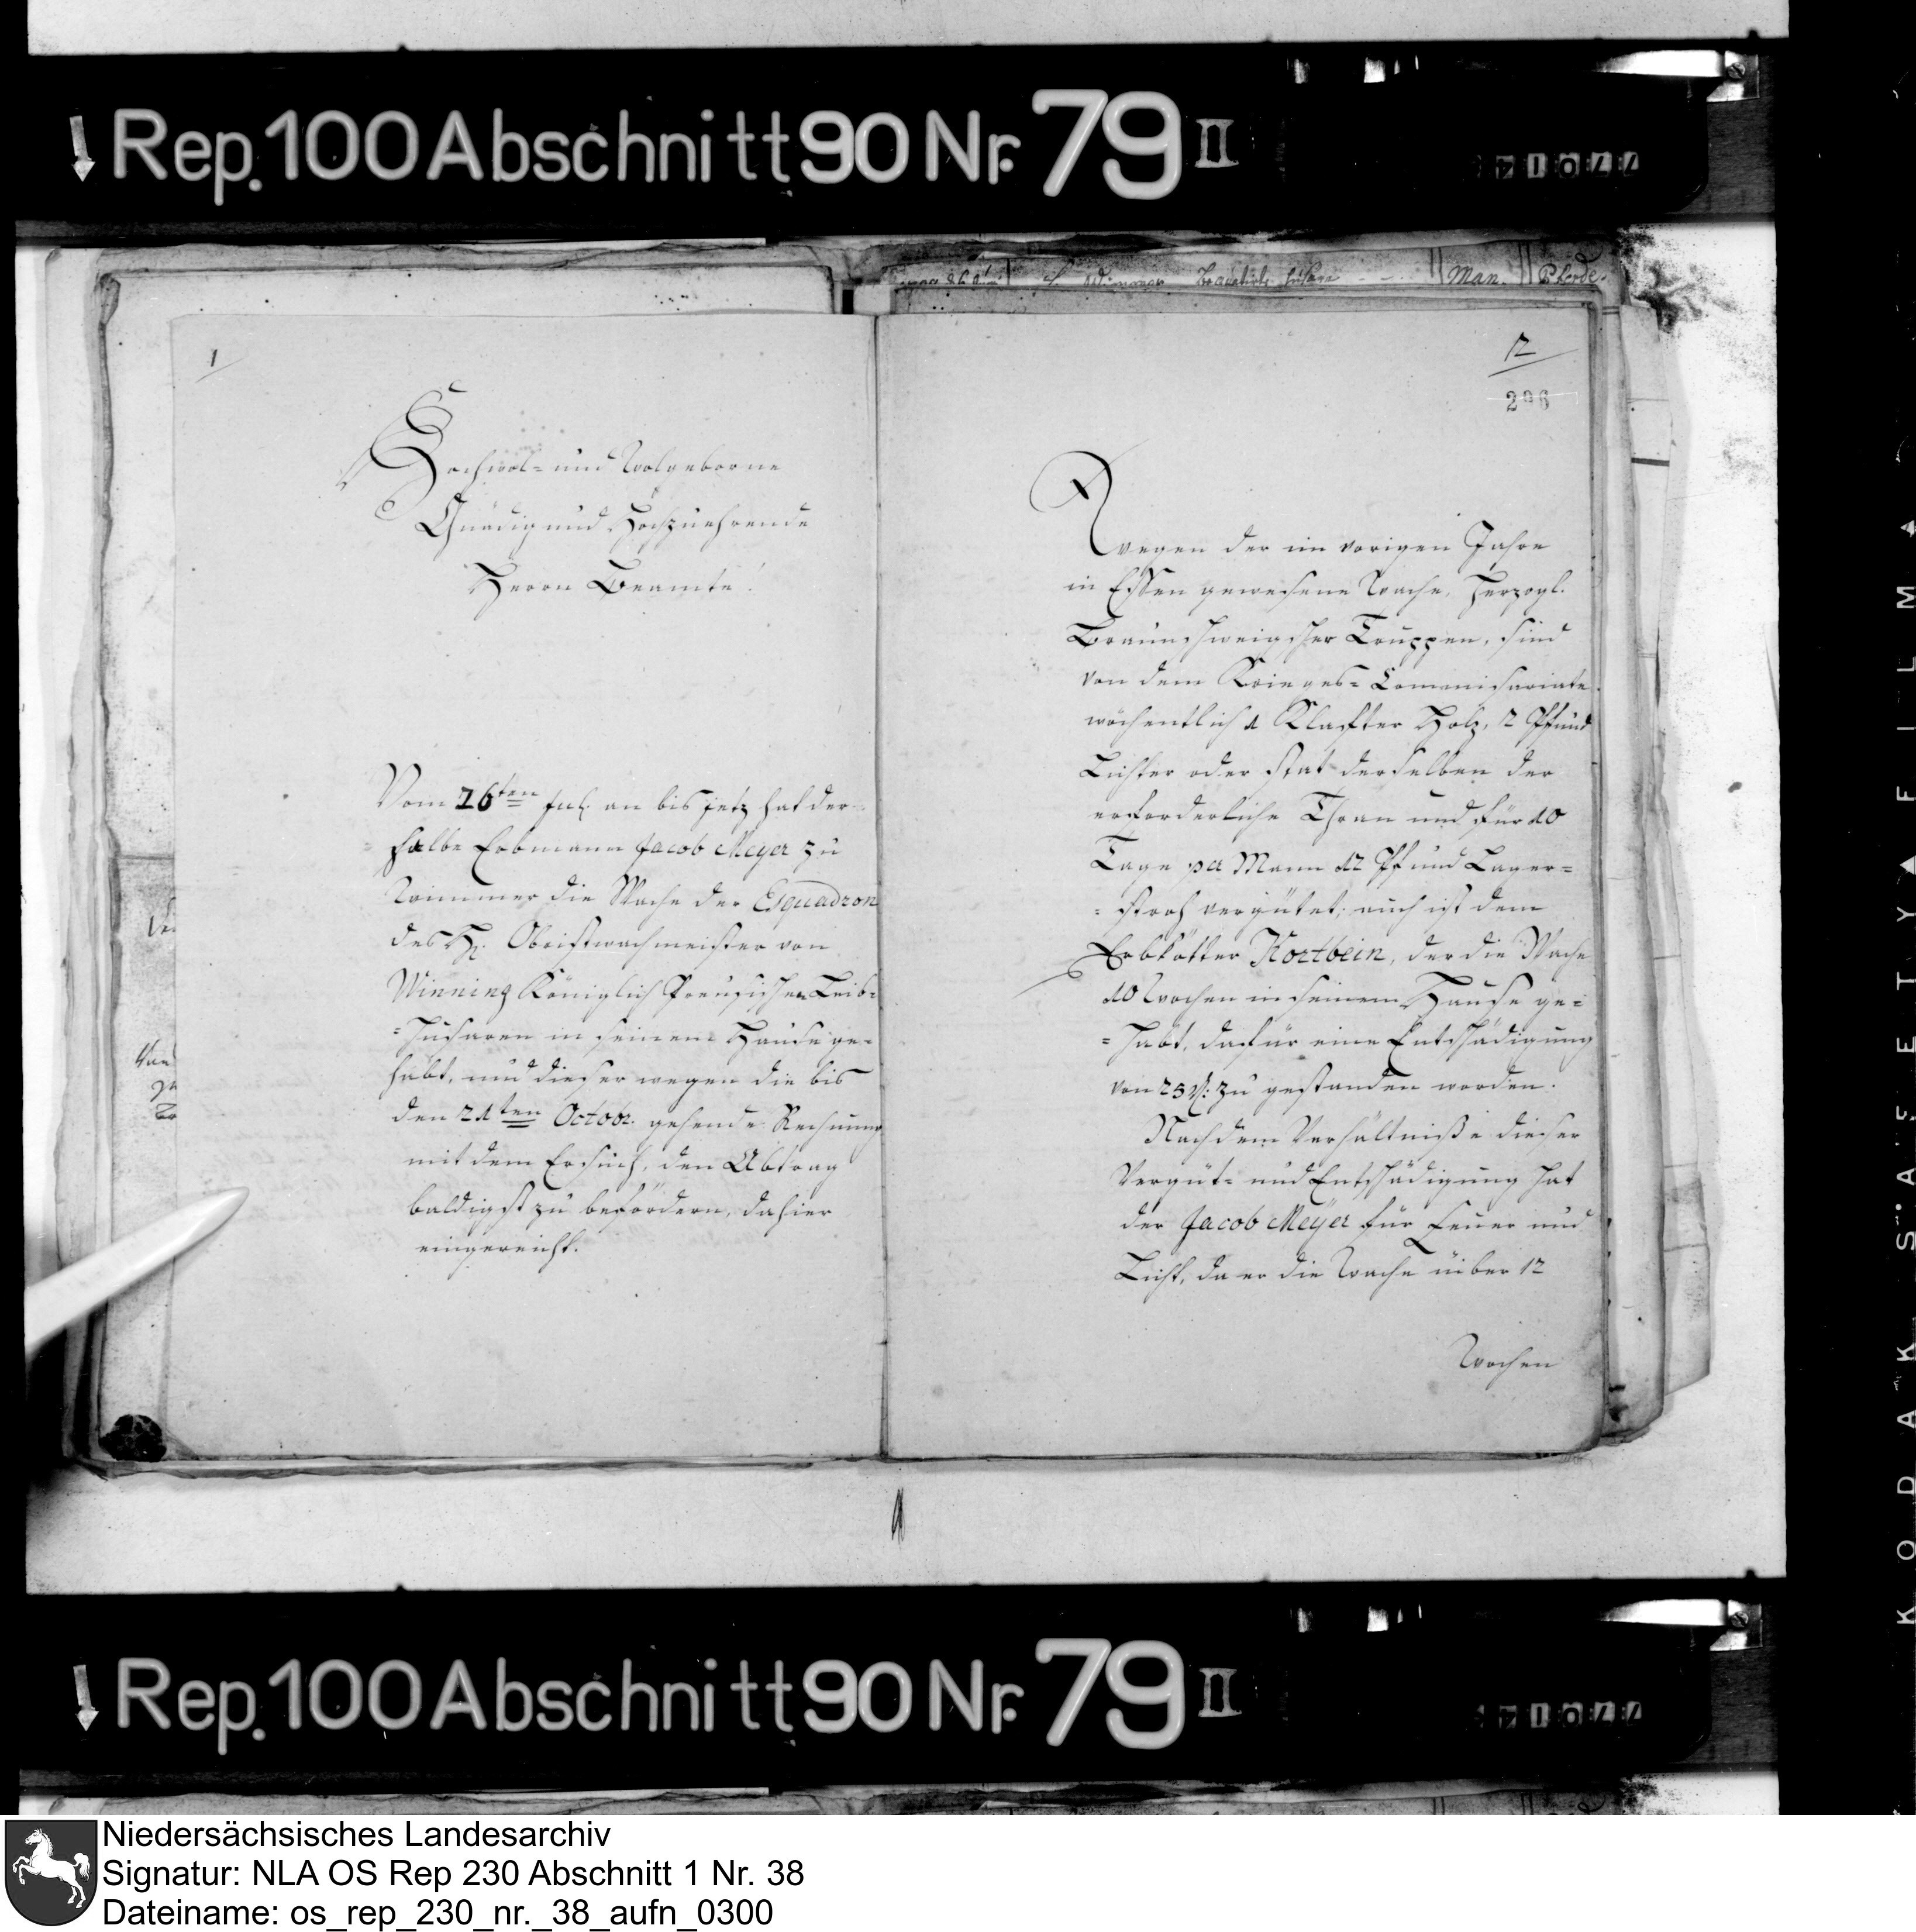 Rep. 100 Abschnitt 90 Nr. 79 II
Man. Pferde.
1
Hochwol= und Wolgeborne
Gnädig und Hochzuehrende
Herrn Beamte!
Vom 26ten Jul. an bis jetz hat der
halbe Erbmann Jacob Meyer zu
Wimmer die Wache der Esquadron
des H. Obristwachmeister von
Winning Königlich Preusischen Leib=
=Husaren in seinem Hause ge=
habt, und dieser wegen die bis
den 21ten Octobr. gehende Rechnung
mit dem Ersuch, den Abtrag
baldigst zu befördern, dahier
eingereicht.
12
296
Wegen der im vorigen Jahre
in Essen gewesene Wache, Herzogl.
Braunschweigscher Truppen, sind
von dem Krieges= Commissariate
wöchentlich 1 Klafter Holz, 2 Pfund
Lichter oder stat derselben der
erforderliche Thran und für 10
Tage per Mann 12 Pfund Lager=
=stroh vergütet; auch ist dem
Erbkötter Kortbein, der die Wache
10 Wochen in seinem Hause ge=
=habt, dafür eine Entschädigung
von 25 zu gestanden worden.
Nach dem Verhältniße dieser
Vergüt= und Entschädigung hat
der Jacob Meyer für Feuer und
Licht, da er die Wache über 12
Wochen
Rep. 100 Abschnitt 90 Nr. 79 II
KODAK SAFETY FILM
Niedersächsisches Landesarchiv
Signatur: NLA OS Rep 230 Abschnitt 1 Nr. 38
Dateiname: os_rep_230_nr._38_aufn_0300